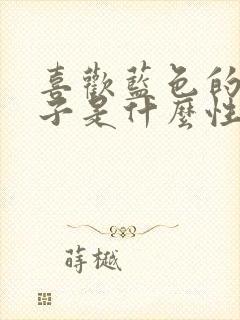 喜歡藍色的
子是什麼性
蒔樾